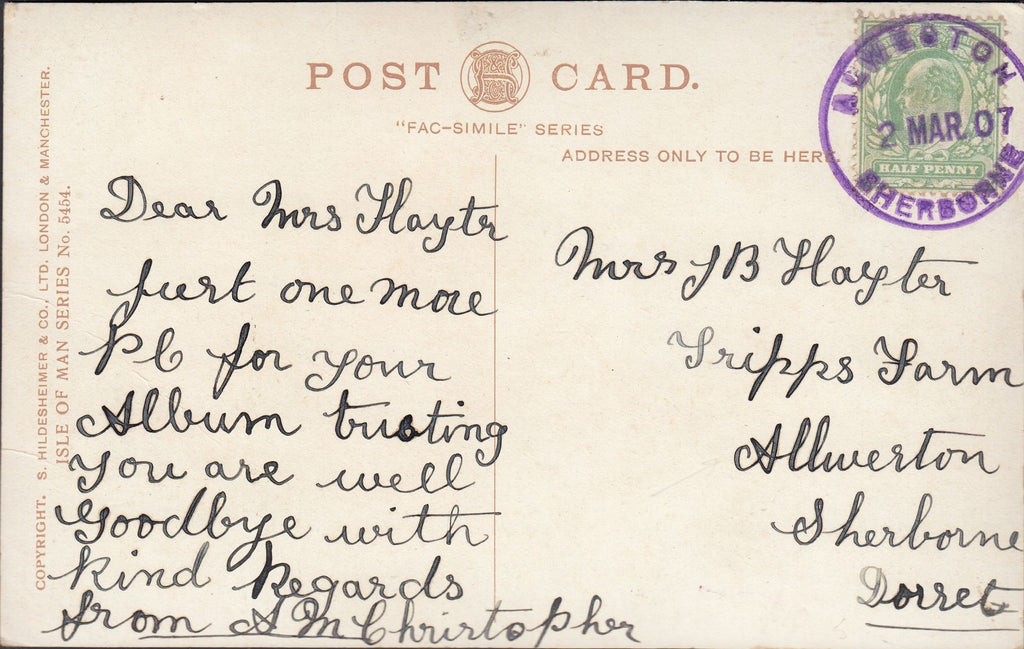 POST CARD.
"FAC-SIMILE" SERIES
ADDRESS ONLY TO BE HERE
ALWESTON
2 MAR.07
SHERBORNE
HALF PENNY
COPYRIGHT. S. HILDESHEIMER & CO., LTD. LONDON & MANCHESTER.
ISLE OF MAN SERIES No. 5454.
Dear Mrs Hayter
just one more
PC for your
Album trusting
you are well
Goodbye with
kind Regards
from A M Christopher
Mrs J B Hayter
Tripps Farm
Allweston
Sherborne
Dorset